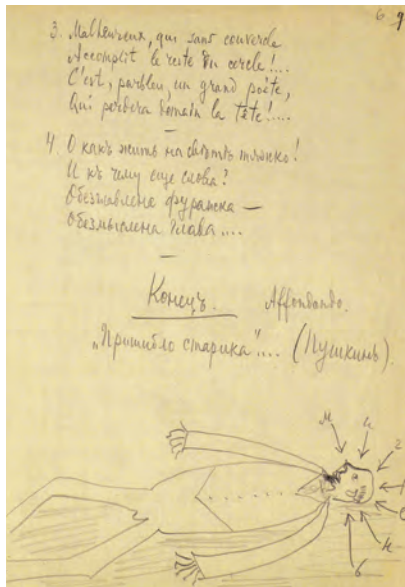 6 9
3. Malheureux, qui sans couvercle
Accomplit le reste du cercle!....
C'est, parbleu, un grand poète,
Qui perdera demain la tête!....
—
4. О какъ жить на свѣтѣ тяжко!
И къ чему еще слова!
Обезглавлена фуражка —
Обезмыслена глава....
—
Конецъ. Affondando.
„Пришибло старика".... (Пушкинъ).
м и г